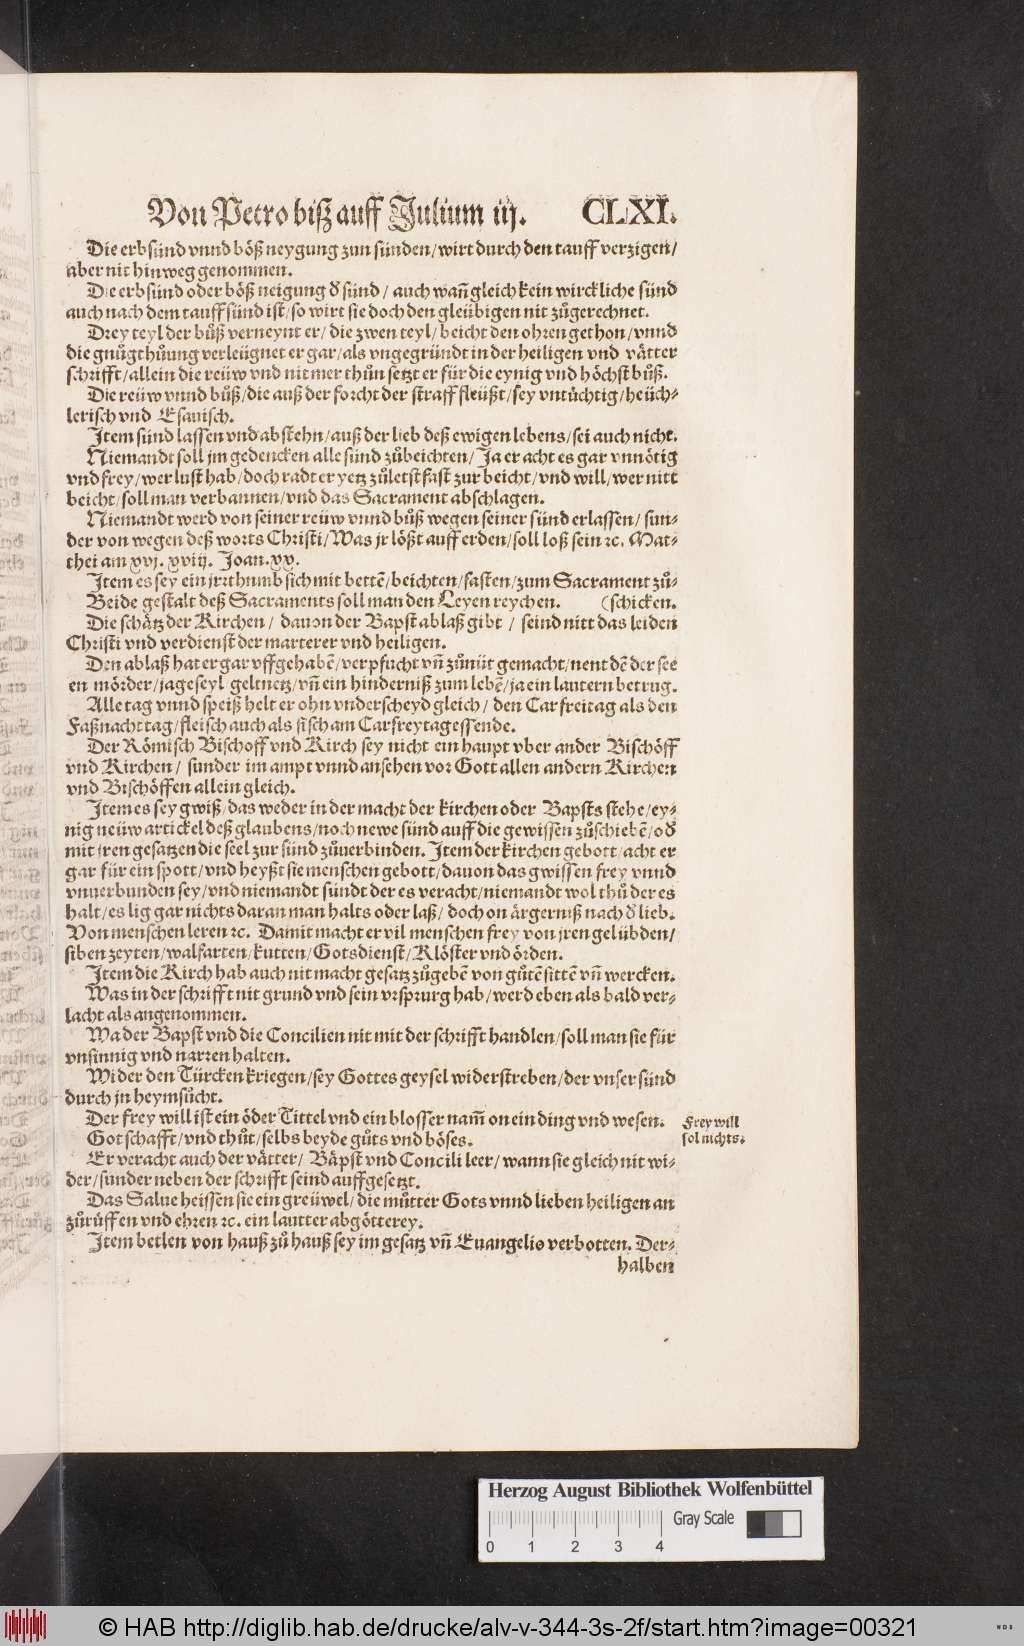 Von Petro biß auff Julium iij. CLXI.
Die erbsünd vnnd böß neygung zun sünden/ wirt durch den tauff verzigen/
aber nit hinweg genommen.
Die erbsünd oder böß neigung d̕ sünd / auch wañ gleich kein wirckliche sünd
auch nach dem tauff sünd ist/ so wirt sie doch den gleübigen nit zůgerechnet.
Drey teyl der bůß verneynt er/ die zwen teyl/ beicht den ohren gethon/ vnnd
die gnůgthůung verleügnet er gar/ als vngegründt in der heiligen vnd vätter
schrifft/ allein die reüw vnd nit mer thůn setzt er für die eynig vnd höchst bůß.
Die reüw vnnd bůß/ die auß der forcht der straff fleüßt/ sey vntüchtig/ heüch-
lerisch vnd Esauisch.
Item sünd lassen vnd abstehn/ auß der lieb deß ewigen lebens/ sei auch nicht.
Niemandt soll jm gedencken alle sünd zůbeichten/ Ja er acht es gar vnnötig
vnd frey/ wer lust hab/ doch radt er yetz zůletst fast zur beicht/ vnd will/ wer nitt
beicht/ soll man verbannen/ vnd das Sacrament abschlagen.
Niemandt werd von seiner reüw vnnd bůß wegen seiner sünd erlassen/ sun-
der von wegen deß worts Christi/ Was jr lößt auff erden/ soll loß sein ꝛc. Mat-
thei am xvj. xviij. Joan. xx.
Item es sey ein jrrthumb sich mit bettē/ beichten/ fasten/ zum Sacrament zů-
Beide gestalt deß Sacraments soll man den Leyen reychen. (schicken.
Die schätz der Kirchen / dauon der Bapst ablaß gibt / seind nitt das leiden
Christi vnd verdienst der marterer vnd heiligen.
Den ablaß hat er gar vffgehabē/ verpfucht vñ zůnüt gemacht/ nent dē der see
en mörder/ jageseyl geltnetz/ vñ ein hinderniß zum lebē/ ja ein lautern betrug.
Alle tag vnnd speiß helt er ohn vnderscheyd gleich / den Carfreitag als den
Faßnacht tag/ fleisch auch als fisch am Carfreytag essende.
Der Römisch Bischoff vnd Kirch sey nicht ein haupt vber ander Bischöff
vnd Kirchen / sunder im ampt vnnd ansehen vor Gott allen andern Kirchen
vnd Bischöffen allein gleich.
Item es sey gwiß/ das weder in der macht der kirchen oder Bapsts stehe/ ey-
nig neüw artickel deß glaubens/ noch newe sünd auff die gewissen zůschiebē/ od̕
mit jren gesatzen die seel zur sünd zůuerbinden. Item der kirchen gebott/ acht er
gar für ein spott/ vnd heyßt sie menschen gebott/ dauon das gwissen frey vnnd
vnuerbunden sey/ vnd niemandt sündt der es veracht/ niemandt wol thů der es
halt/ es lig gar nichts daran man halts oder laß/ doch on ärgerniß nach d̕ lieb.
Von menschen leren ꝛc. Damit macht er vil menschen frey von jren gelübden/
siben zeyten/ walfarten/ kutten/ Gotsdienst/ Klöster vnd örden.
Item die Kirch hab auch nit macht gesatz zůgebē von gůtē sittē vñ wercken.
Was in der schrifft nit grund vnd sein vrsprurg hab/ werd eben als bald ver-
lacht als angenommen.
Wa der Bapst vnd die Concilien nit mit der schrifft handlen/ soll man sie für
vnsinnig vnd narren halten.
Wider den Türcken kriegen/ sey Gottes geysel widerstreben/ der vnser sünd
durch jn heymsůcht.
Der frey will ist ein öder Tittel vnd ein blosser nam̄ on ein ding vnd wesen.
Frey will
sol nichts.
Got schafft/ vnd thůt/ selbs beyde gůts vnd böses.
Er veracht auch der vätter/ Bäpst vnd Concili leer/ wann sie gleich nit wi-
der/ sunder neben der schrifft seind auffgesetzt.
Das Salue heissen sie ein greüwel/ die můtter Gots vnnd lieben heiligen an
zůrüffen vnd ehren ꝛc. ein lautter abgötterey.
Item betlen von hauß zů hauß sey im gesatz vñ Euangelio verbotten. Der-
halben
Herzog August Bibliothek Wolfenbüttel
Gray Scale
0 1 2 3 4
© HAB http://diglib.hab.de/drucke/alv-v-344-3s-2f/start.htm?image=00321